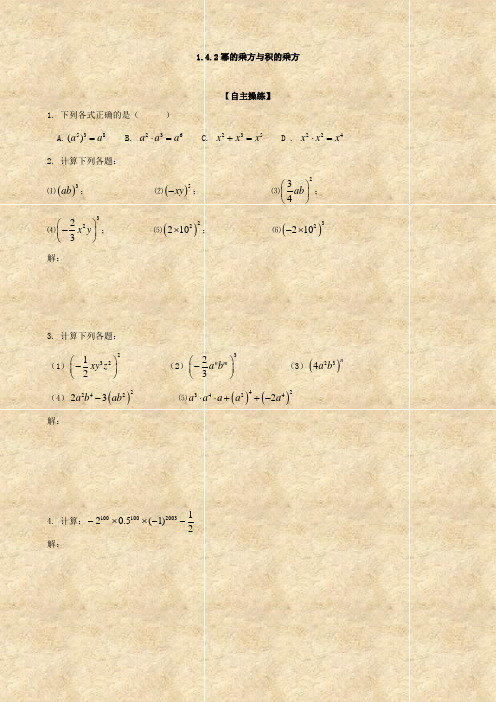 1.4.2幂的乘方与积的乘方
【自主操练】
1. 下列各式正确的是（ ）
A. $(a^5)^3=a^8$ B. $a^2\cdot a^3=a^6$ C. $x^2+x^3=x^5$ D . $x^2\cdot x^2=x^4$
2. 计算下列各题：
⑴$(ab)^3$； ⑵$(-xy)^5$； ⑶$\left(\frac{3}{4}ab\right)^2$；
⑷$\left(-\frac{2}{3}x^2y\right)^3$； ⑸$\left(2\times10^2\right)^2$； ⑹$\left(-2\times10^2\right)^3$
解：
3. 计算下列各题：
（1）$\left(-\frac{1}{2}xy^3z^2\right)^2$ （2）$\left(-\frac{2}{3}a^nb^m\right)^3$ （3）$\left(4a^2b^3\right)^n$
（4）$2a^2b^4-3\left(ab^2\right)^2$ ⑸$a^3\cdot a^4\cdot a+\left(a^2\right)^4+\left(-2a^4\right)^2$
解：
4. 计算：$-2^{100}\times0.5^{100}\times(-1)^{2003}-\frac{1}{2}$
解：